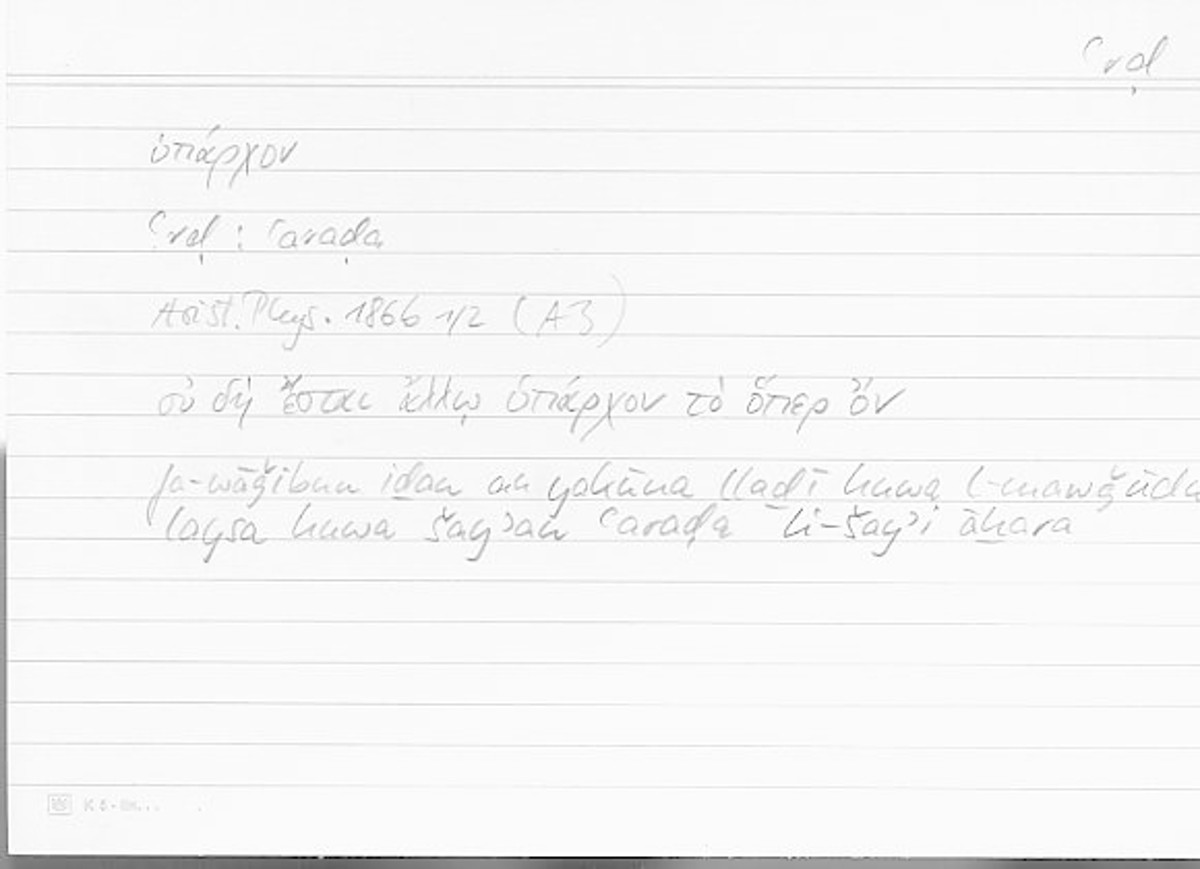 ʿrḍ
ὑπάρχον
ʿrḍ : ʿaraḍa
Arist. Phys. 186b 1/2 (A3)
οὐ δὴ ἔσται ἄλλῳ ὑπάρχον τὸ ὅπερ ὄν
fa-wāǧibun iḏan an yakūna llaḏī huwa l-mawǧūdu
laysa huwa šayʾan ʿaraḍa li-šayʾi āḫara